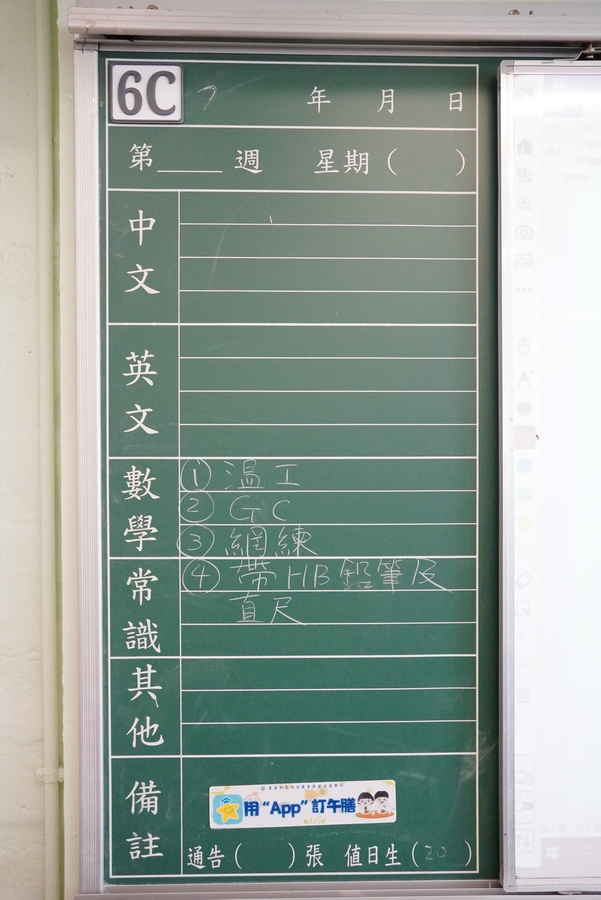 6C 年 月 日
第 週 星期( )
中文
英文
數學
① 溫工
② GC
③ 網練
常識
④ 帶HB鉛筆及
直尺
其他
備註
用“App”訂午膳
通告( )張 值日生(20)